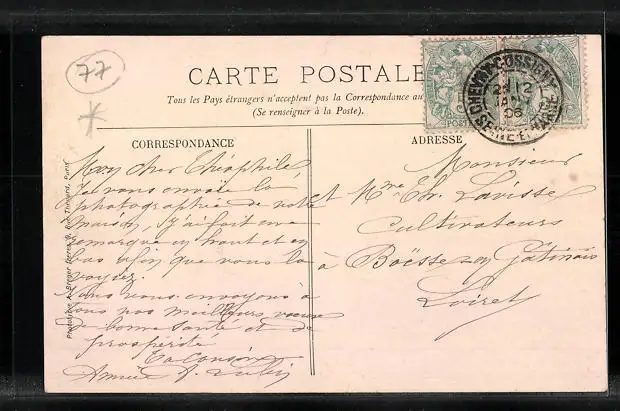 77
CARTE POSTALE
Tous les Pays étrangers n'acceptent pas la Correspondance au
(Se renseigner à la Poste).
CHEVRY-COSSIGNY
12
JANV
06
SEINE-ET-MARNE
CORRESPONDANCE
Mon cher Théophile
Je vous envoie la
photographie de notre
maison, j'ai fait une
remarque en haut et en
bas afin que vous la
voyiez.
Nous vous envoyons à
tous nos meilleurs vœux
de bonne santé et de
prospérité
Ta Cousine
ADRESSE
Monsieur
et Mme Th. Lavisse
Cultivateurs
à Boësse en Gâtinais
Loiret